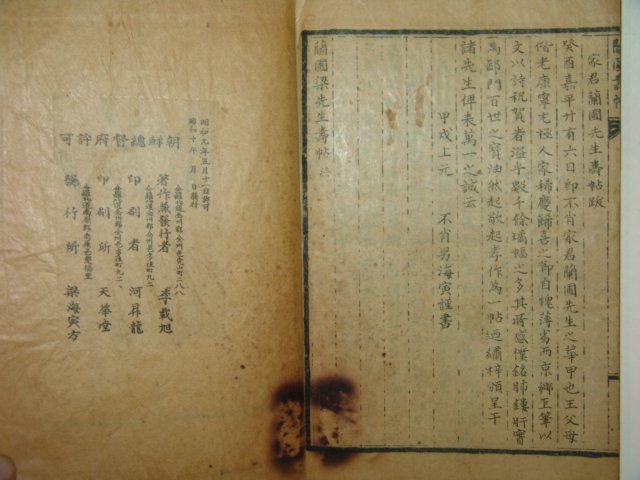 家君蘭圃先生壽帖跋
癸酉嘉平廿有六日卽不肖家君蘭圃先生之華甲也王父母
偕老康寧尤極人家稀慶歸喜之節自愧薄劣而京鄕巨筆以
文以詩祝賀者溢乎數千餘瑤幅之多其所感僕銘肺鏤肝實
爲鄙門百世之寶油然起敬起孝作爲一帖洒繡梓頒呈于
諸先生俾表萬一之誠云
甲戌上元 不肖男海寅謹書
蘭圃梁先生壽帖終
昭和九年五月十一日許可
昭和十年 月 日發行
朝鮮總督府許可
著作兼發行者 李載旭
印刷者 河昇龍
印刷所 天華堂
發行所 梁海寅方